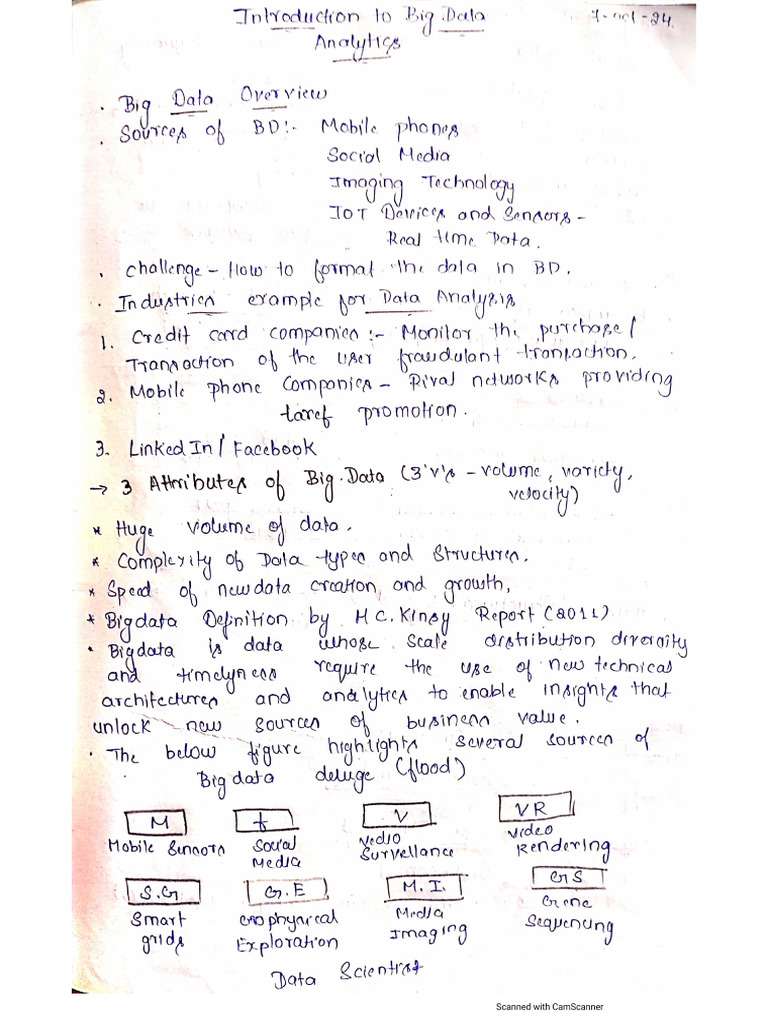 Introduction to Big Data 7-oct-24.
Analytics
. Big Data Overview
. Sources of BD:- Mobile phones
Social Media
Imaging Technology
IOT Devices and Sensors -
Real time Data.
. challenge - How to format the data in BD.
. Industries example for Data Analysis
1. Credit card companies :- Monitor the purchase/
Transaction of the user fraudulant transaction.
2. Mobile phone Companies - Rival networks providing
taref promotion.
3. LinkedIn / Facebook
→ 3 Attributes of Big Data (3'v's - volume, variety,
velocity)
* Huge volume of data.
* Complexity of Data types and Structures.
* Speed of new data creation and growth,
* Bigdata Definition by MC.Kinsy Report (2011)
. Bigdata is data whose scale distribution diversity
and timelyness require the use of new technical
architectures and analytics to enable insights that
unlock new sources of business value.
. The below figure highlights several sources of
Big data deluge (flood)
M f V VR
Mobile Sensors Social Media Vedio Survellance Video Rendering
S.G G.E M.I. GS
Smart grids Geophysical Exploration Media Imaging Gene Sequencing
Data Scientist
Scanned with CamScanner